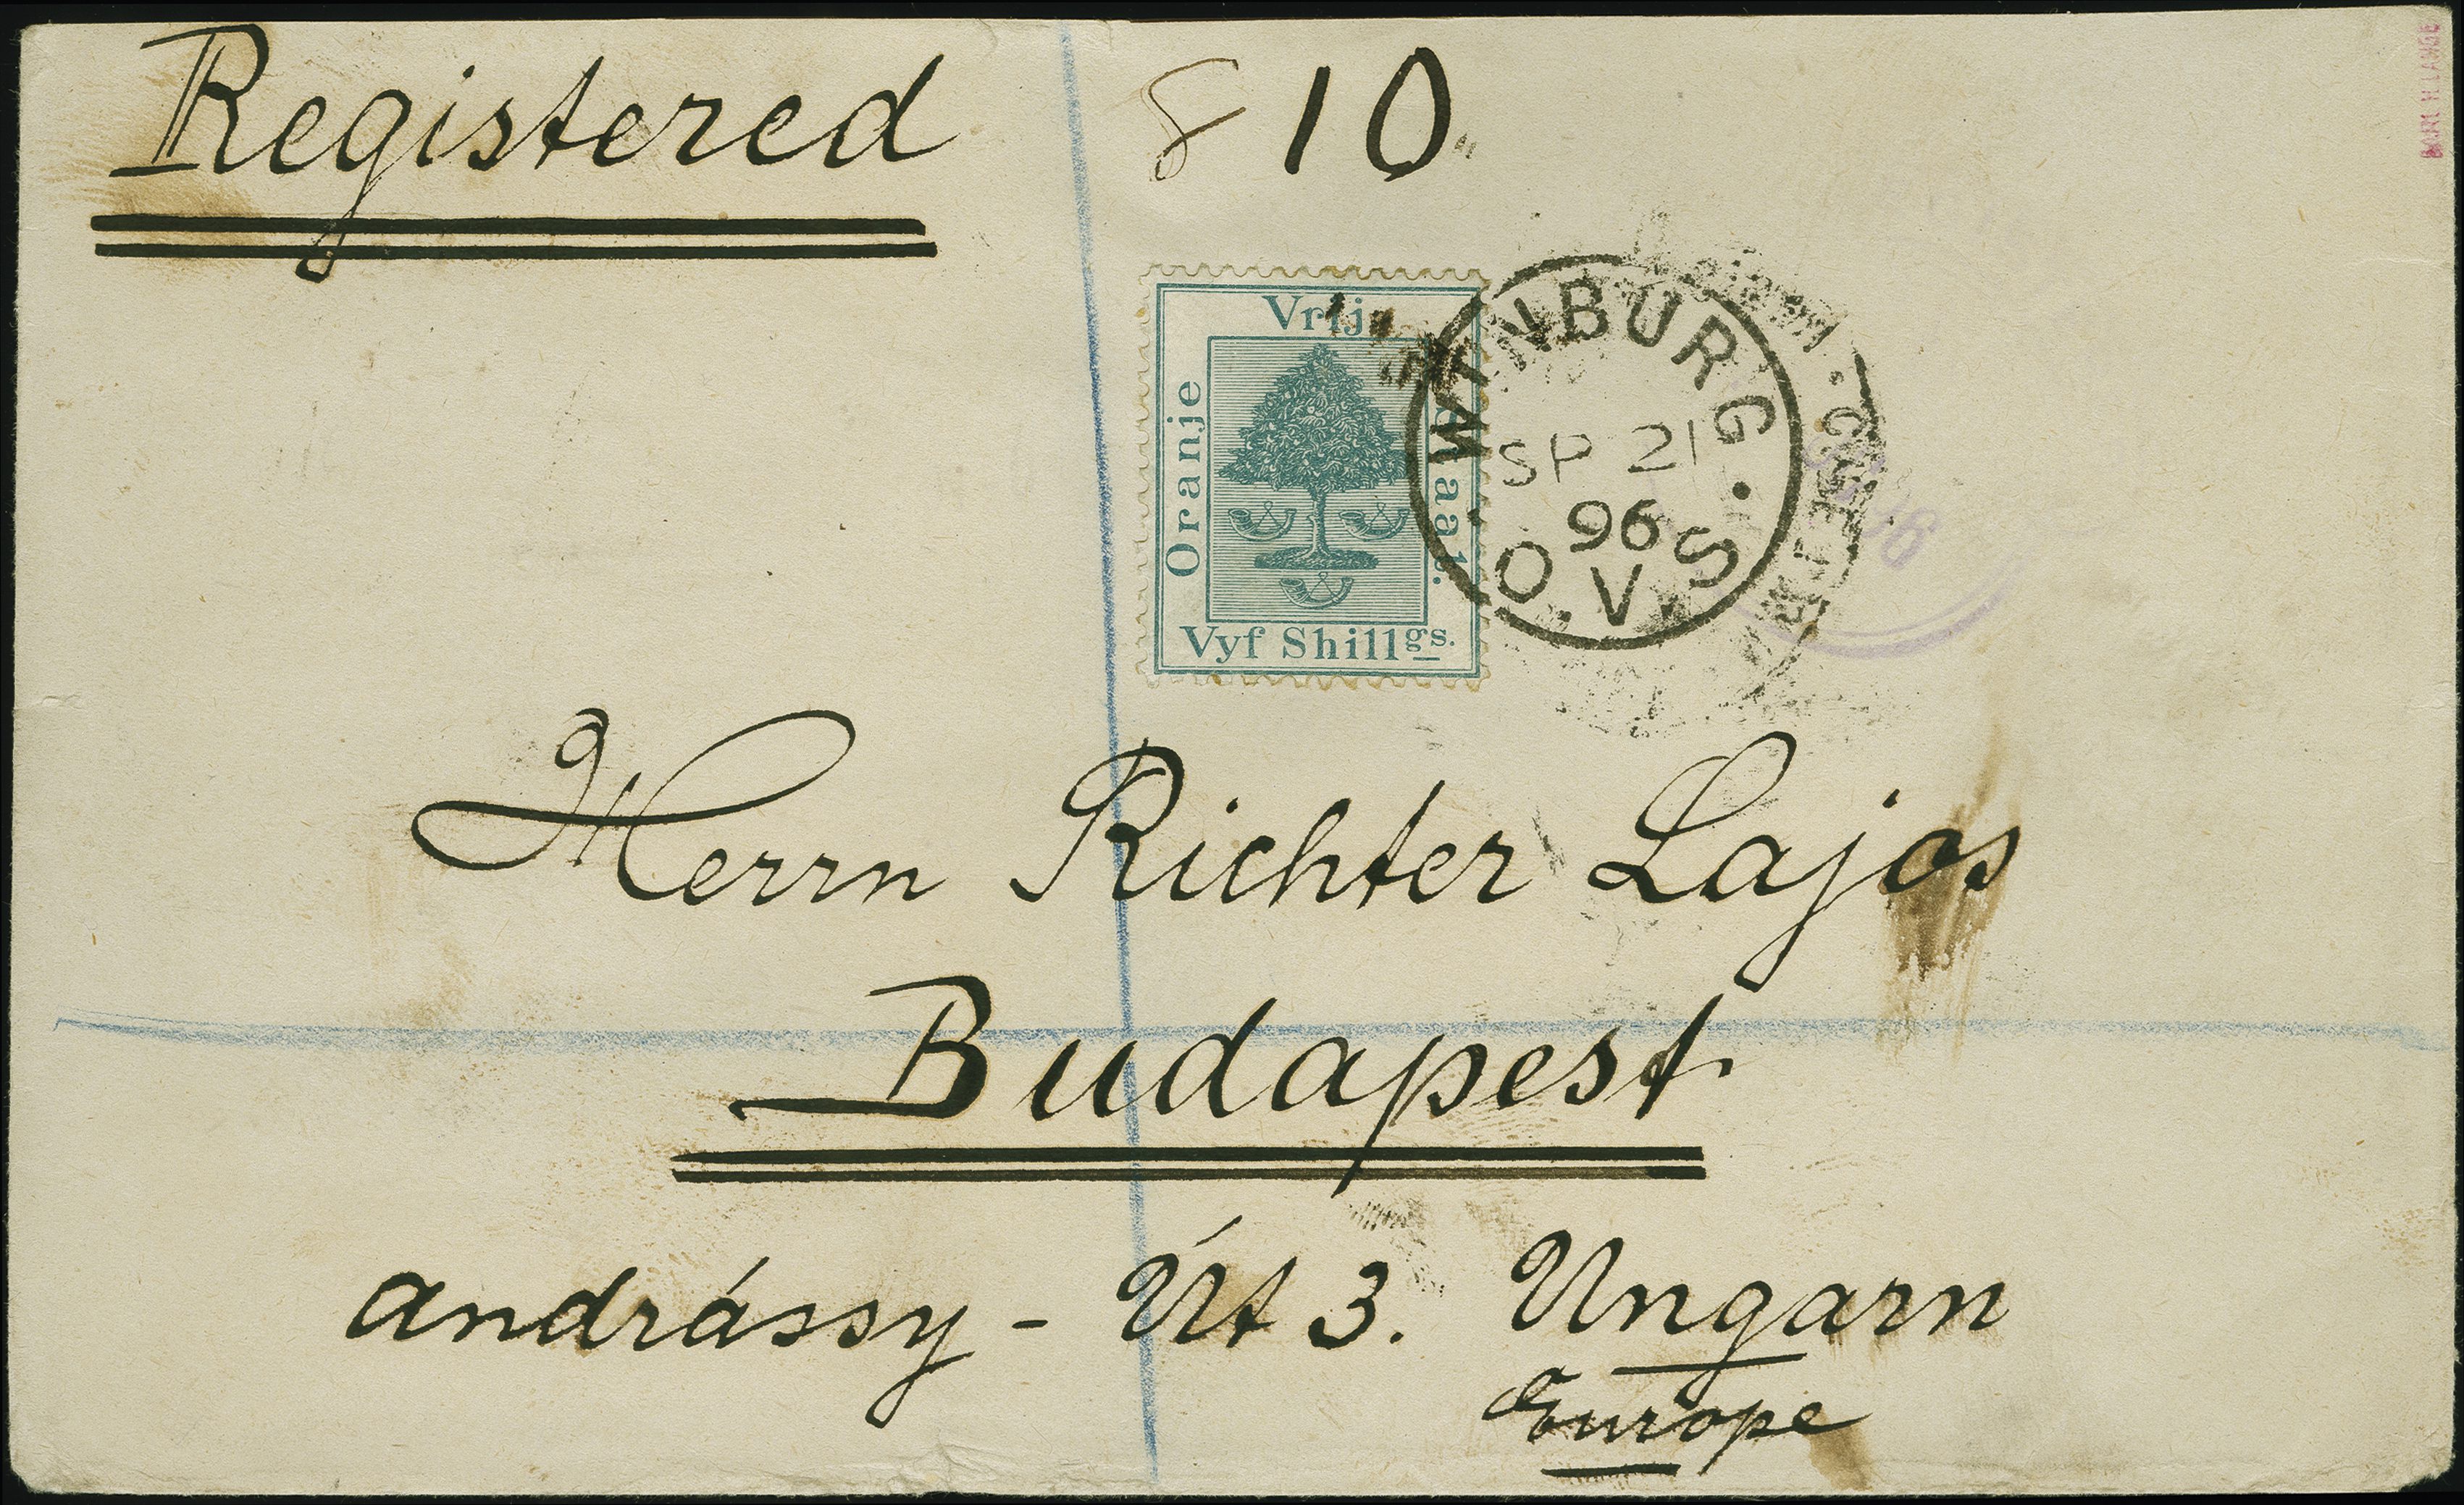 Registered 8 10
Vrij
Oranje
Staat.
Vyf Shillgs.
WINBURG.
SP 21
96
O.V.S
Herrn Richter Lajos
Budapest
Andrássy - Út 3. Ungarn
Europe